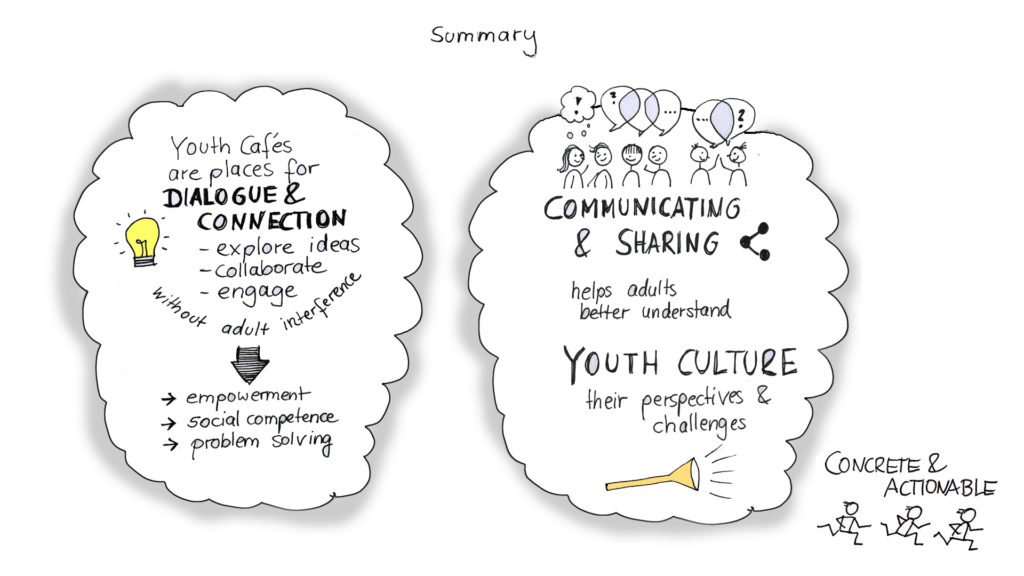 Summary
Youth Cafés
are places for
DIALOGUE &
CONNECTION
- explore ideas
- collaborate
- engage
without adult interference
→ empowerment
→ social competence
→ problem solving
! ? ... ... ?
COMMUNICATING
& SHARING
helps adults
better understand
YOUTH CULTURE
their perspectives &
challenges
CONCRETE &
ACTIONABLE